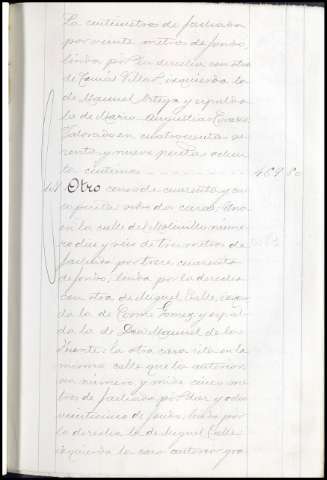 ta centimetros de fachada
por veinte metros de fondo,
linda por la derecha con otra
de Tomás Villar, izquierda la
de Manuel Ortega y espalda
la de Maria Angustias
valorado en cuatrocientas se
senta y nueve pesetas ochen
ta centimos 469 80
Otro censo de cuarenta y cin
co pesetas sobre dos casas, una
en la calle del Molinillo nume
ro dos y mide de tres metros de
fachada por trece cuarenta
de fondo, linda por la derecha
con otra de Miguel Calle, izquier
da la de Gomez y espal
da la de Don Manuel de la
Fuente; la otra casa sita en la
misma calle que la anterior
sin numero, y mide cinco me
tros de fachada por
veinticinco de fondo, linda por
la derecha la de Miguel Calle
izquierda la casa anterior gra